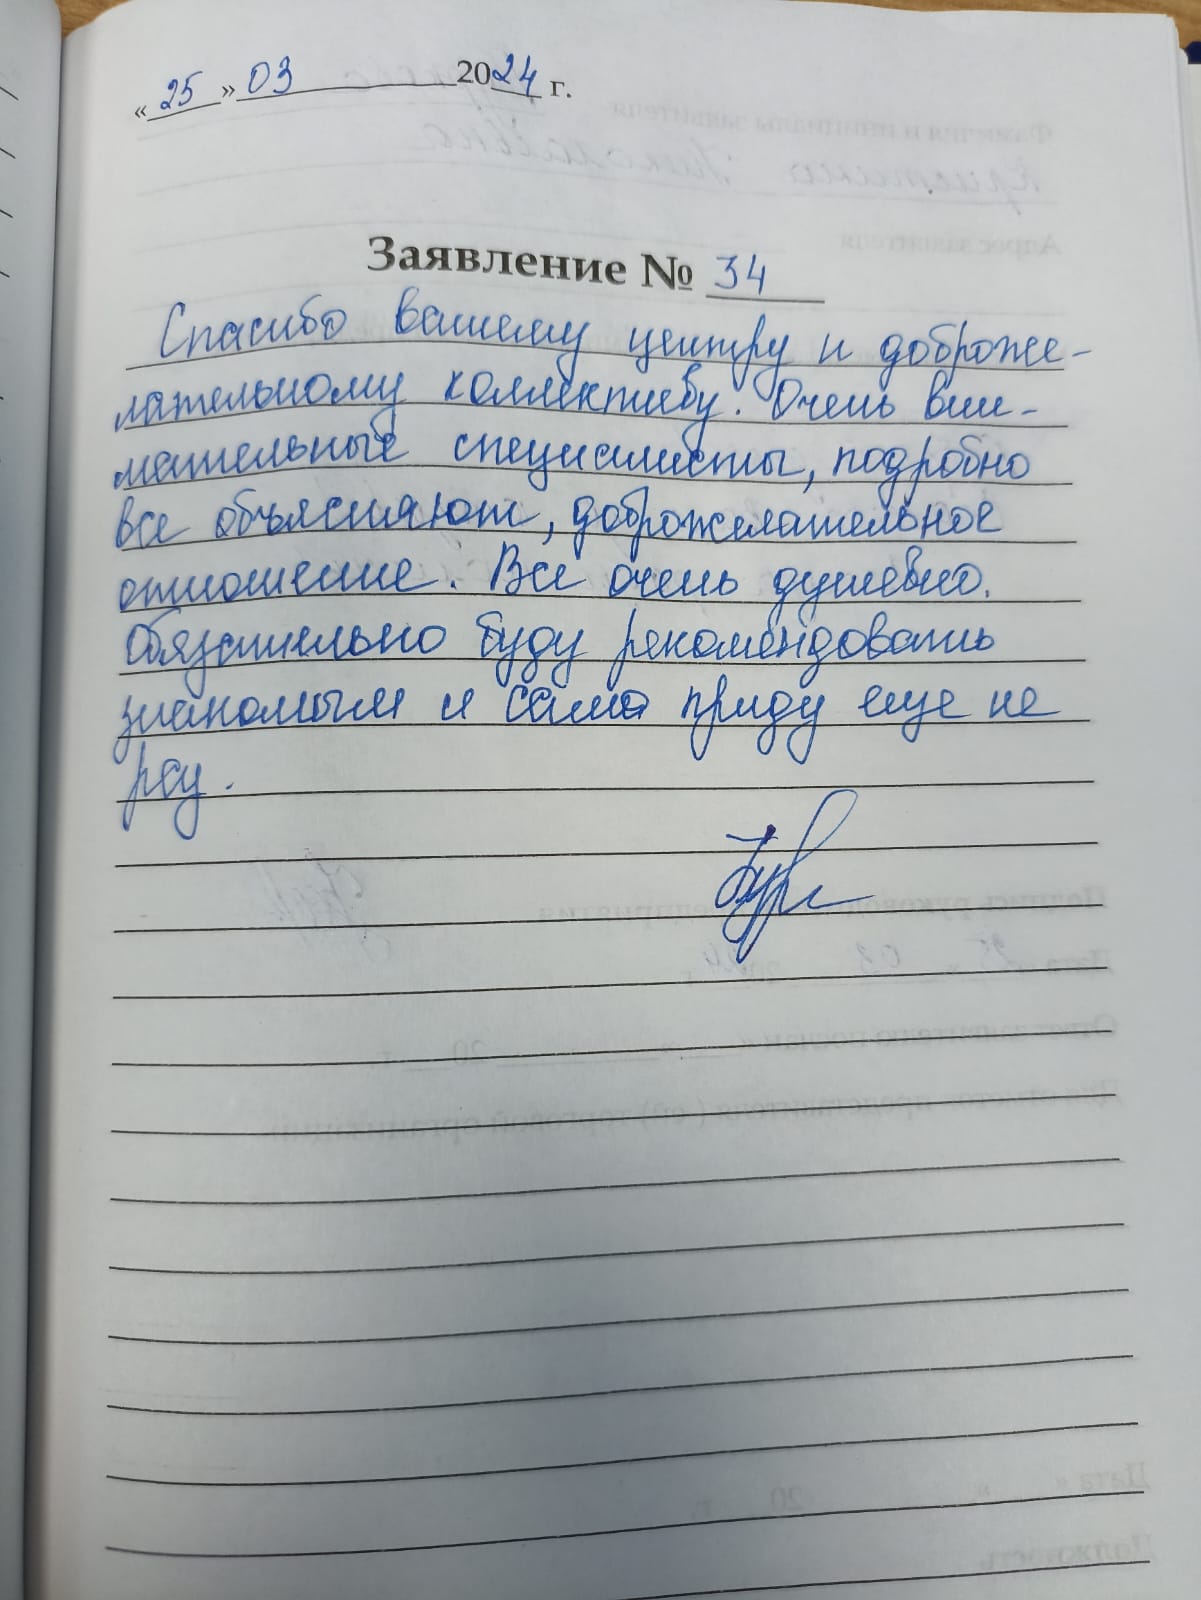 «25» 03 2024 г.
Заявление № 34
Спасибо вашему центру и доброже-
лательному коллективу. Очень вни-
мательные специалисты, подробно
все объясняют, доброжелательное
отношение. Все очень душевно.
Обязательно буду рекомендовать
знакомым и сама приду еще не
разу.